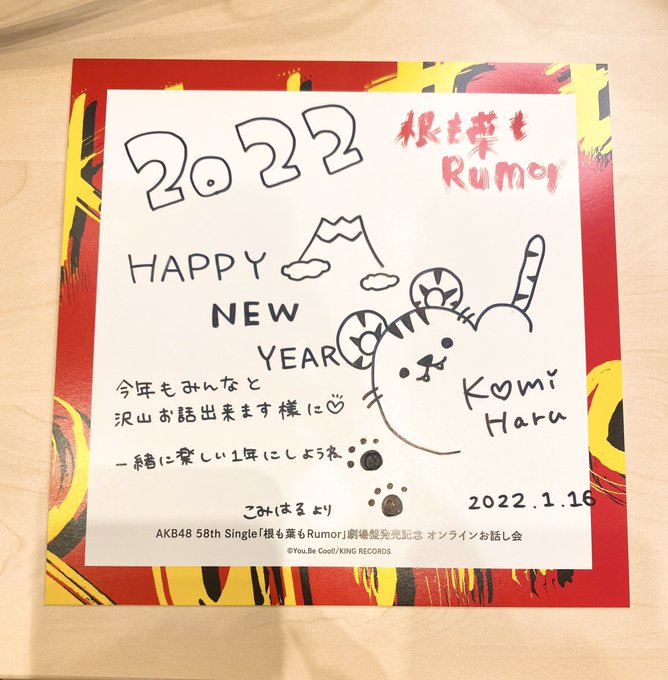 2022
根も葉も
Rumor
HAPPY
NEW
YEAR
今年もみんなと
沢山お話出来ます様に♡
一緒に楽しい1年にしようね
K♡mi
Haru
こみはるより
2022.1.16
AKB48 58th Single「根も葉もRumor」劇場盤発売記念 オンラインお話し会
©You,Be Cool!/KING RECORDS